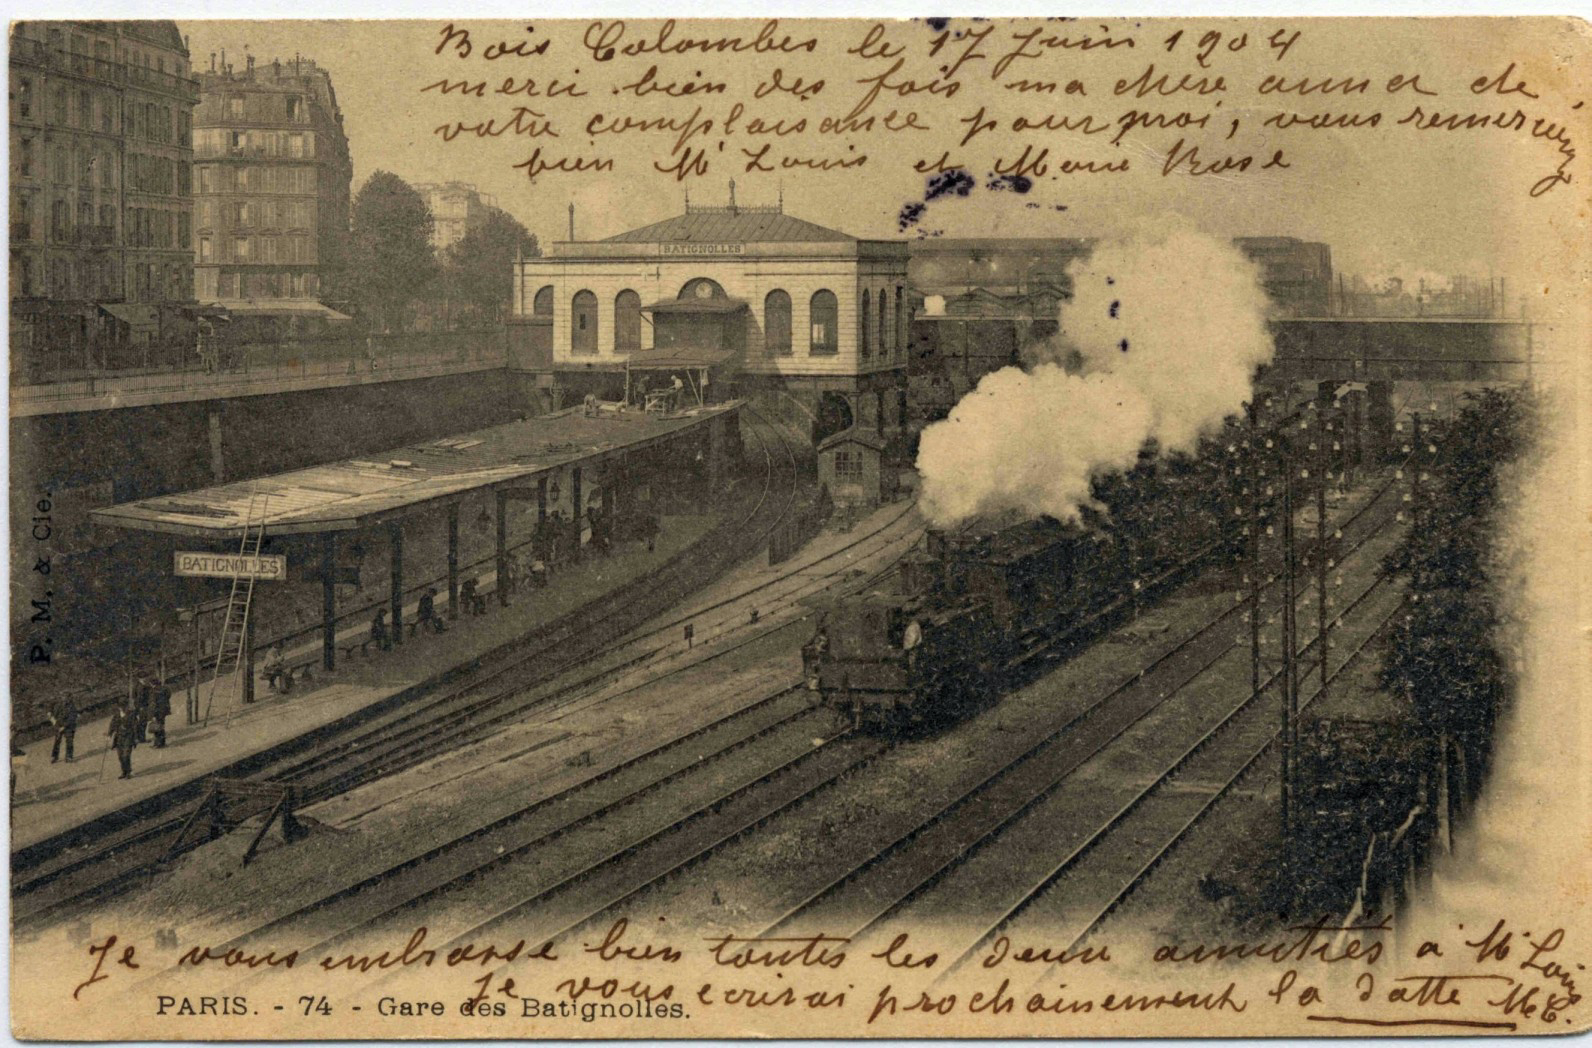 Bois Colombes le 17 Juin 1904
merci bien des fois ma chère anna de
votre complaisance pour moi, vous remercierez
bien Mr Louis et Marie Rose
BATIGNOLLES
BATIGNOLLES
P. M. & Cie.
Je vous embrasse bien toutes les deux amitiés a Mr Louis
Je vous ecrirai prochainement la datte
PARIS. - 74 - Gare des Batignolles.